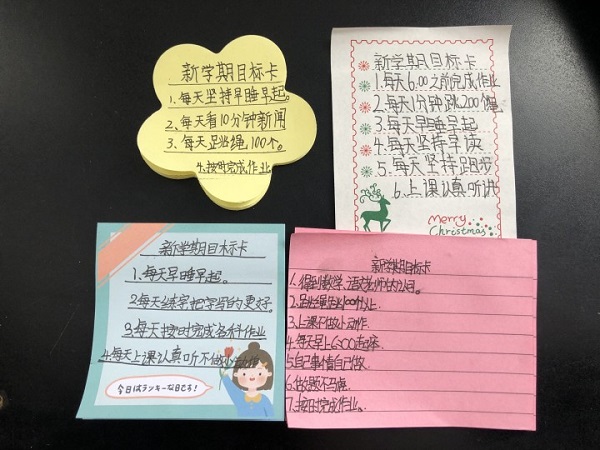 新学期目标卡
1.每天坚持早睡早起。
2.每天看10分钟新闻
3.每天跳绳100个。
4.按时完成作业
新学期目标卡
1.每天6:00之前完成作业
2.每天1分钟跳200绳
3.每天早睡早起
4.每天坚持早读
5.每天坚持跑步
6.上课认真听讲
Merry
Christmas
新学期目标卡
1.每天早睡早起。
2.每天练字把字写的更好。
3.每天按时完成各种作业
4.每天上课认真听不做小动作
今日はラッキーな日だろ!
新学期目标卡
1.得到数学、语文老师的认同。
3.上课不做小动作.
4.每天早上6:00起床.
5.自己事情自己做.
6.做题不马虎.
7.按时完成作业.